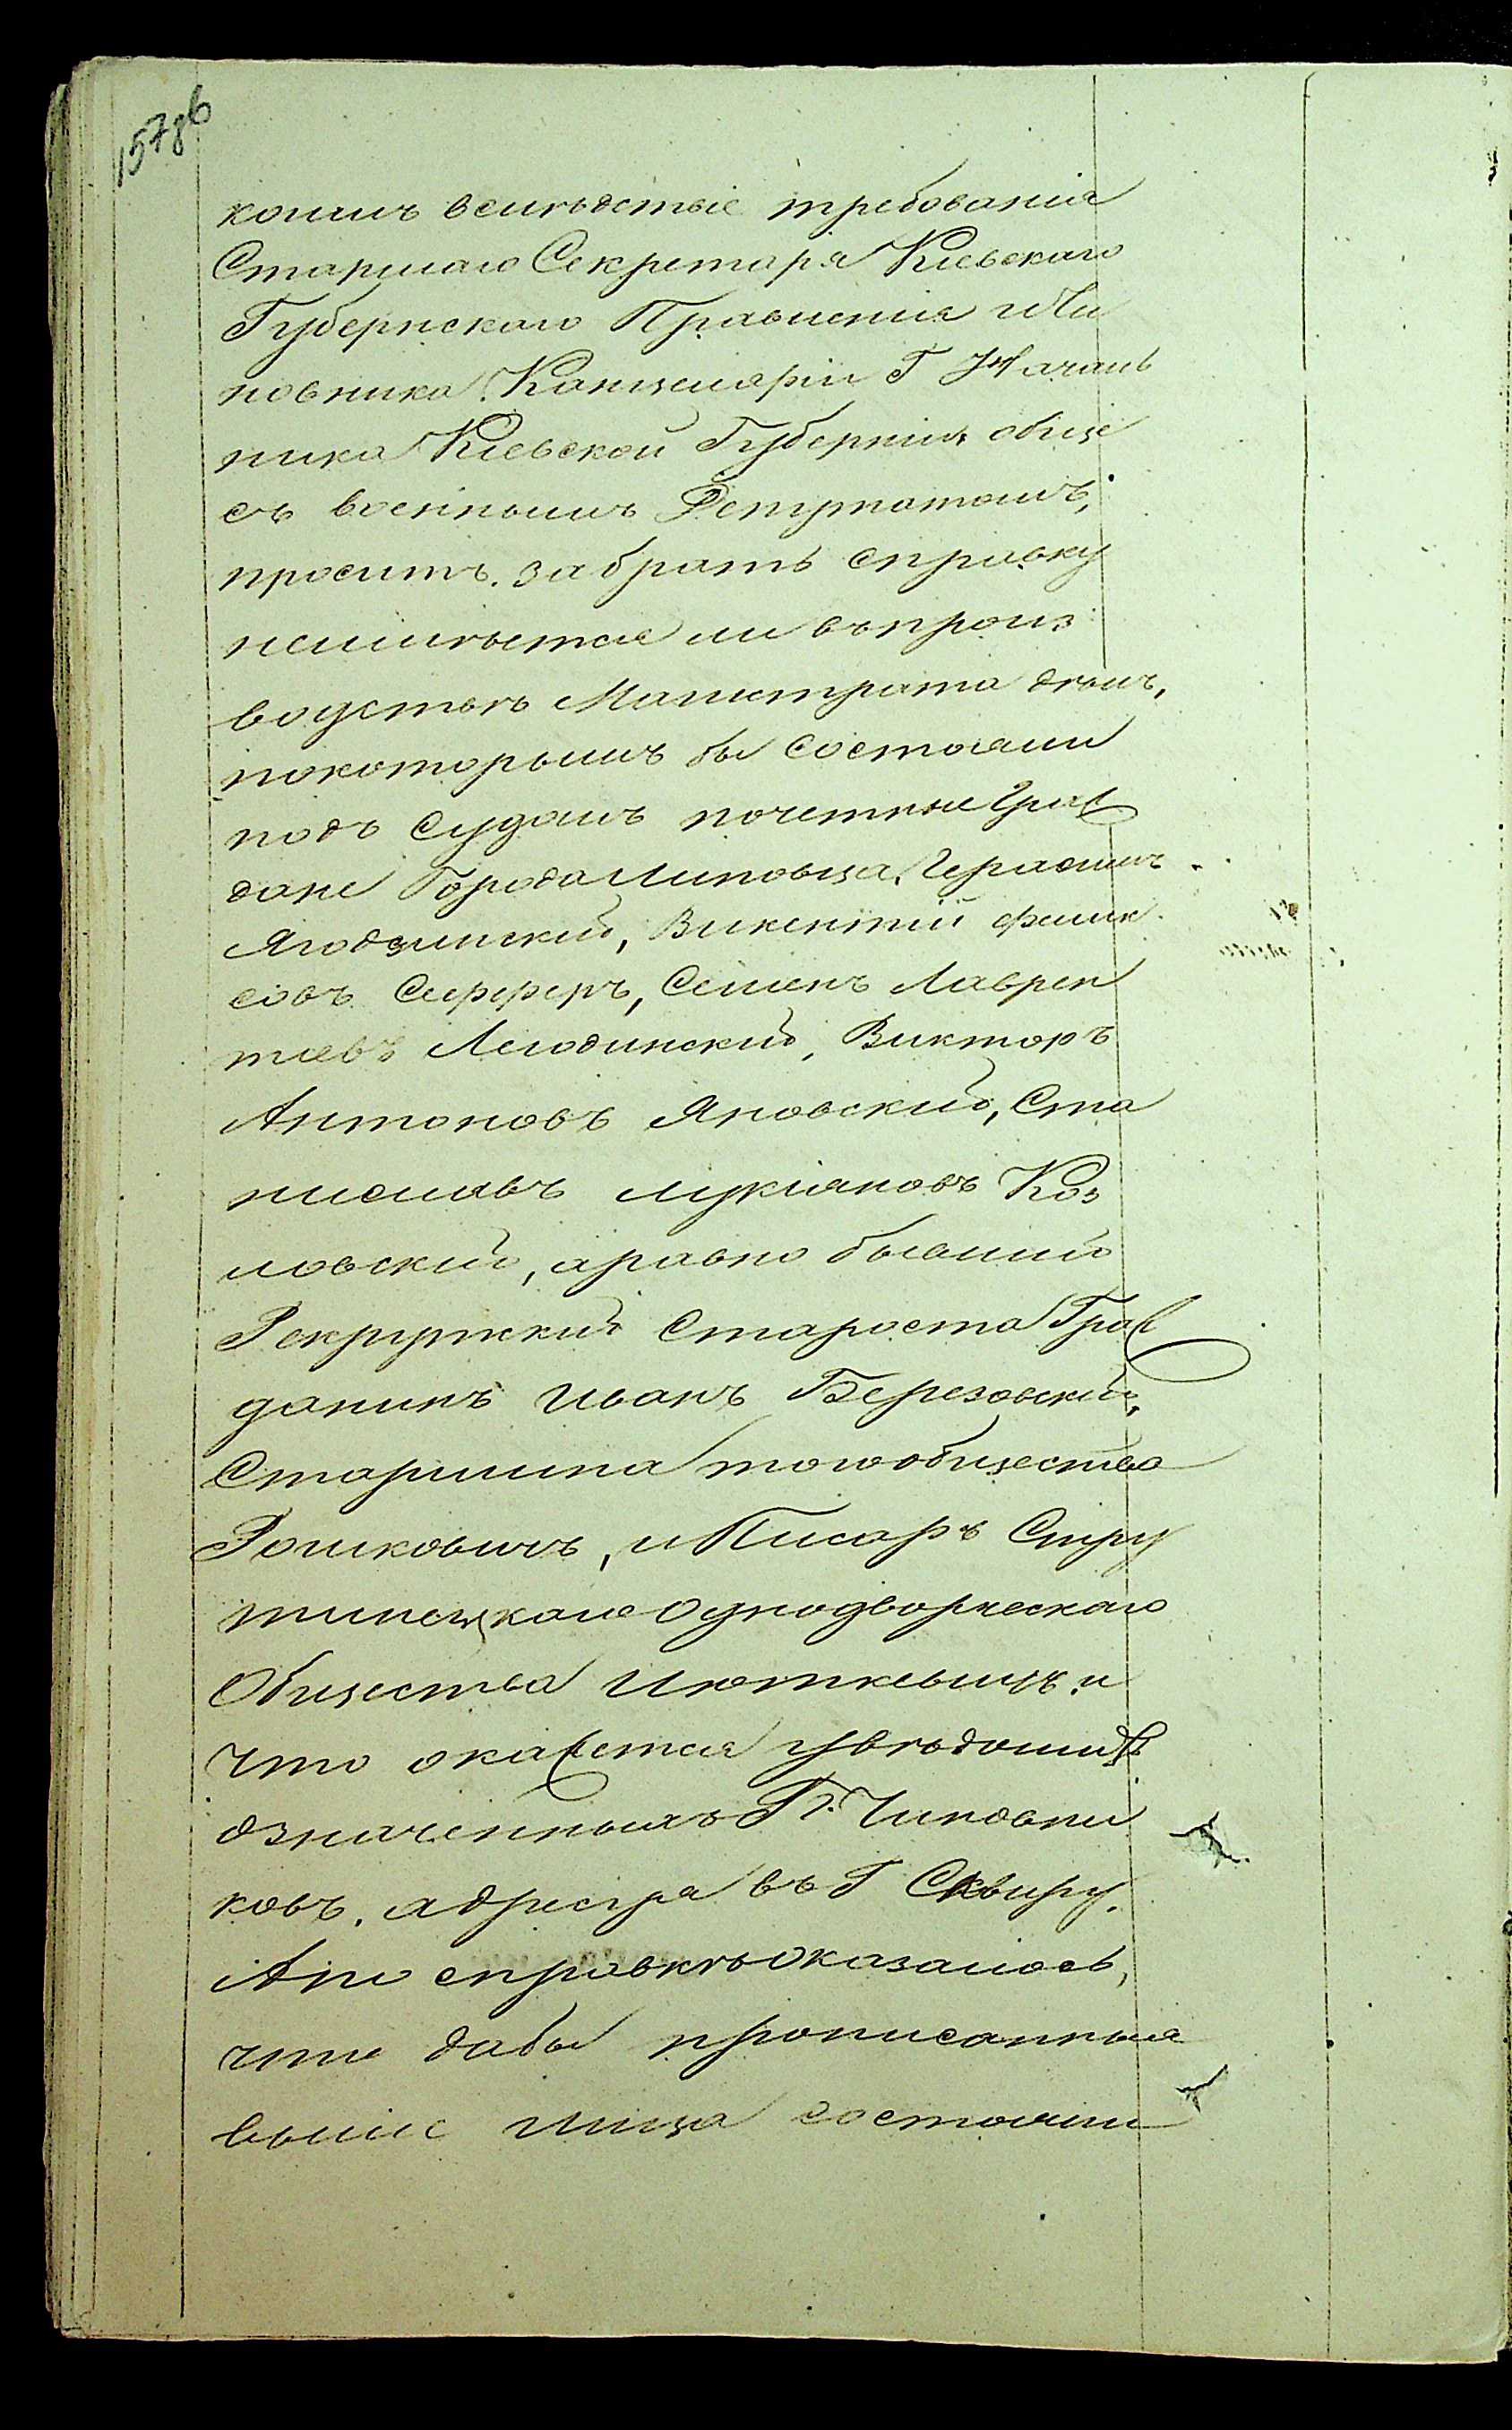 157 об
коимъ вслѣдствіе требованія
Старшаго Секретаря Кіевскаго
Губернскаго Правленія и Чи
новника Канцеляріи Г Началь
ника Кіевской Губерніи, обще
съ военнымъ Депутатомъ,
проситъ забрать справку
неимѣется ли въ произ
водствѣ Магистрата дѣлъ,
покоторымъ бы состояли
подъ судомъ почетные Граж
дане Города Липовца, Герасимъ
Ягодзинский, Викентий Фелик
совъ Сиффертъ, Семенъ Лаврен
тиевъ Ягодинский, Викторъ
Антоновъ Яновский, Ста
ниславъ Лукіяновъ Коз
ловский, а равно бывший
Рекрутский Староста Граж
данинъ Иванъ Березовский,
Старшина того общества
Рошковичъ, и Писарь Стру
тинецкаго Однодворческаго
Общества Июткевичъ и
что окажется увѣдомить
означенныхъ Гг. Чиновни
ковъ, адресуя въ Г Сквиру.
А по справкѣ Оказалось,
что дабы прописанныя
выше лица состояли